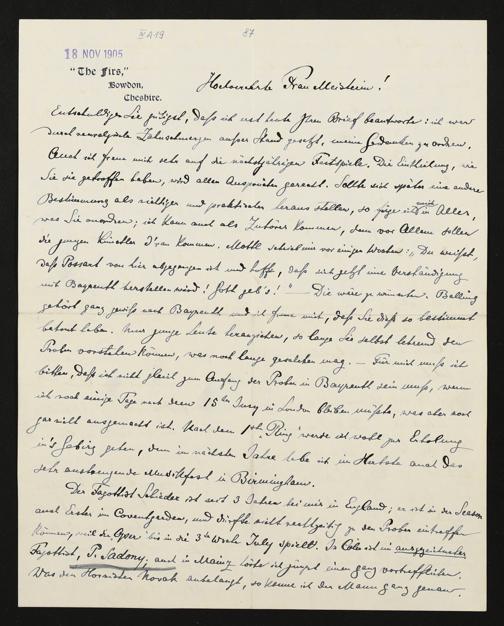 IV A 19
87
18 NOV 1905
"The Firs,"
Bowdon,
Cheshire.
Hochverehrte Frau Meisterin!
Entschuldigen Sie gütigst, daß ich erst heute Ihren Brief beantworte: ich war
durch Zahnschmerzen außer Stand gesetzt, meine Gedanken zu ordnen.
Auch ich freue mich sehr auf die nächstjährigen Festspiele. Die Eintheilung, wie
Sie sie getroffen haben, wird allen Ansprüchen gerecht. Sollte sich später eine andere
Bestimmung als richtiger und praktischer heraus stellen, so füge ich mich in Alles,
was Sie anordnen; ich kann auch als Zuhörer kommen, denn vor Allem sollen
die jungen Künstler d'ran kommen. Mottl schrieb mir vor einigen Wochen: „Du weißt,
daß Possart von hier abgegangen ist und hoffe, daß sich jetzt eine Verständigung
mit Bayreuth herstellen wird! Gott geb's!" Die wäre zu wünschen. Balling
gehört ganz gewiß nach Bayreuth und ich freue mich, daß Sie dieß so bestimmt
betont haben. Nur junge Leute heranziehen, so lange Sie selbst lehrend den
Proben vorstehen können, was noch lange geschehen mag. — Für mich muß ich
bitten, daß ich nicht gleich zum Anfang der Proben in Bayreuth sein muß, wenn
ich noch einige Tage nach dem 15ten Juny in London bleiben müßte, was aber noch
gar nicht ausgemacht ist. Nach dem 1sten „Ring" werde ich wohl zur Erholung
in's Gebirg gehen, denn im nächsten Jahre habe ich im Herbste auch das
sehr anstrengende Musikfest in Birmingham.
Der Fagottist Schieder ist seit 3 Jahren bei mir in England; er ist in der Season
auch Erster in Coventgarden, und dürfte nicht rechtzeitig zu den Proben eintreffen
können, weil die Oper bis in die 3te Woche July spielt. In Cöln ist ein ausgezeichneter
Fagottist, P. Sadony, auch in Mainz hörte ich jüngst einen ganz vortrefflichen.
Was den Hornisten Novak anbelangt, so kenne ich den Mann ganz genau.